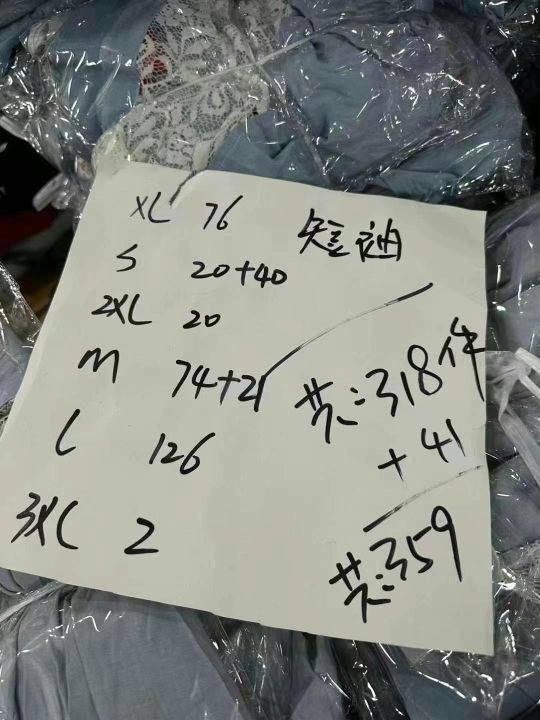 XL 76 短袖
S 20+40
2XL 20
M 74+21
L 126
3XL 2
共:318件
+41
共:359